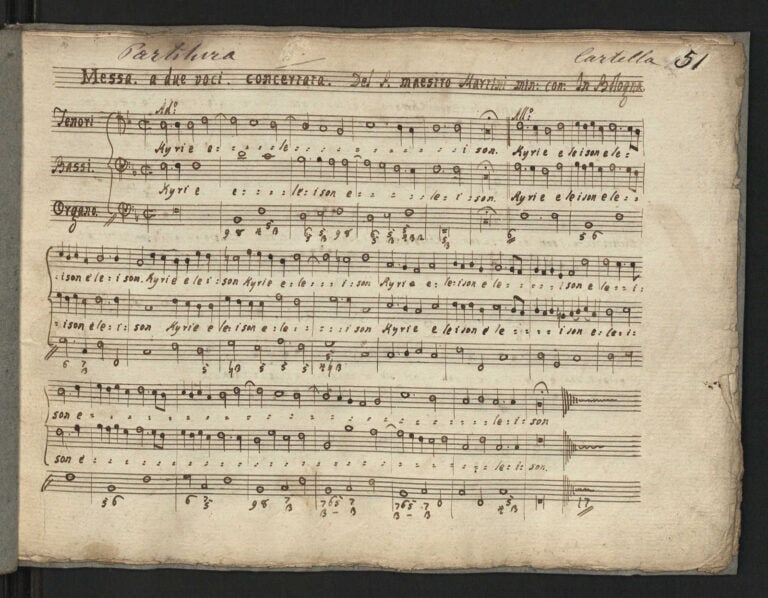 Partitura Cartella 51
Messa. a due voci. concertata. Del S. maestro Martini min: con: In Bologna
Ad.º All.º
Tenori
Kyrie e : : : : le : : : : : : : : : : : : i son. Kyrie e le ison e le :
Bassi.
Kyrie e : : : : : le : ison e : : : : : : le : i son. Kyrie e le ison e le :
Organo.
9 8 4 5 6 5 9 8 6 5 6 5 6
: ison e le : i son. Kyrie e le : i son Kyrie e : le : : : i : son Kyrie e le ison e le : : : : : ison e le : : i :
: ison e le : i : son Kyrie e le i son e : le : : : : i : son Kyrie e le ison e le : : : : ison e : le : i :
6 7 5 6 5
son e : : : : : : : : : : : : : : : : : : : le : i : son
son e : : : : : : : : : : : : : : : : : : : le : i son.
5 6 6 7 5 9 8 7 7 6 5 7 7 6 5 7 5 4 17